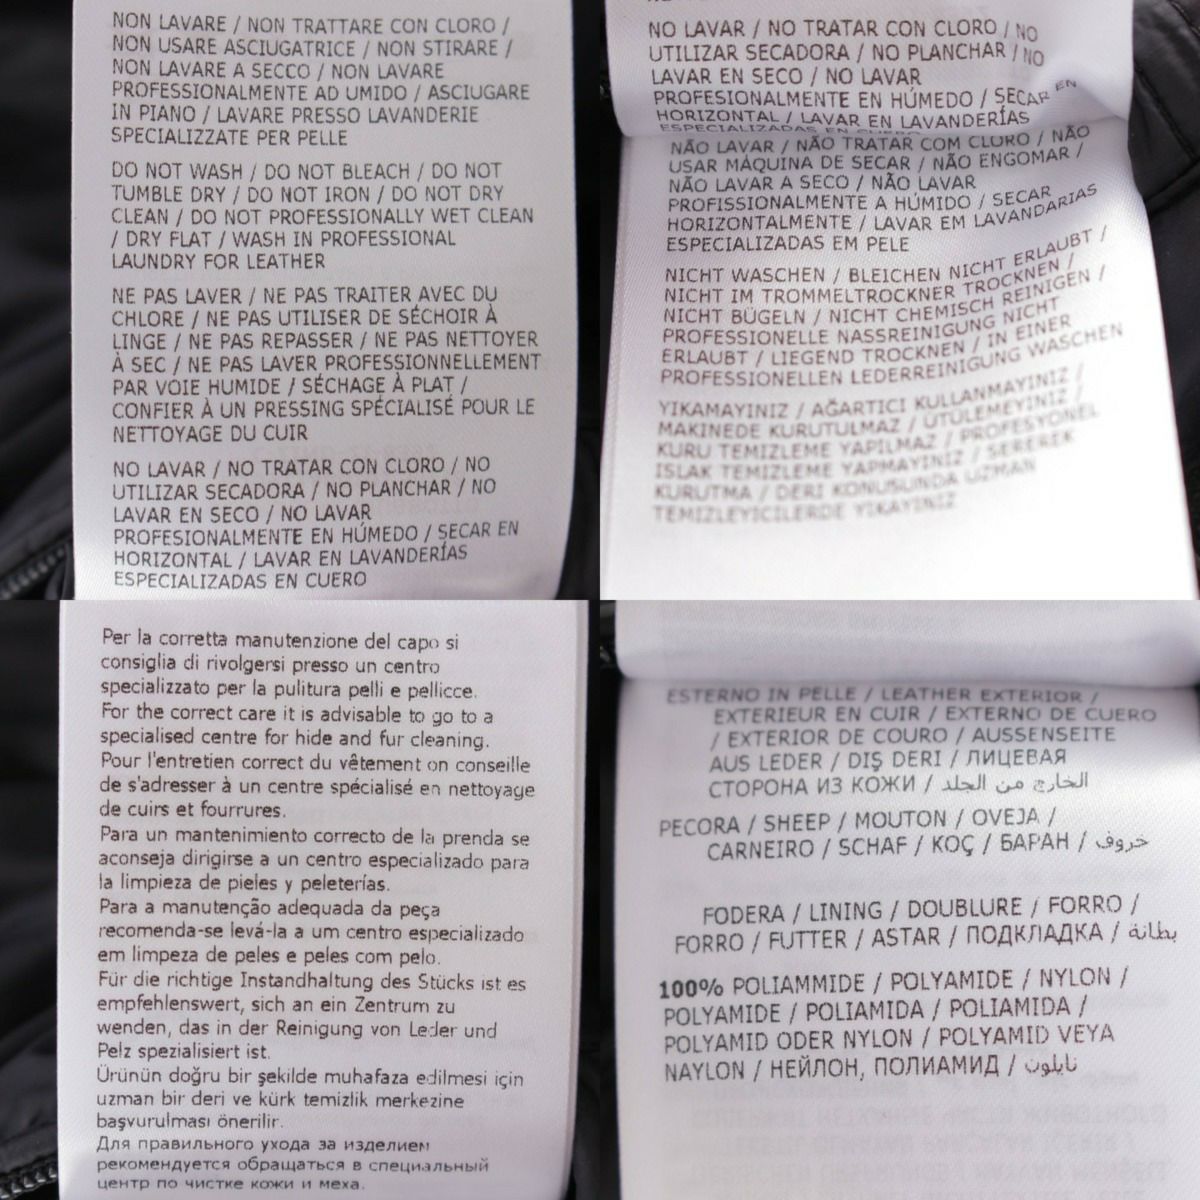 NON LAVARE / NON TRATTARE CON CLORO /
NON USARE ASCIUGATRICE / NON STIRARE /
NON LAVARE A SECCO / NON LAVARE
PROFESSIONALMENTE AD UMIDO / ASCIUGARE
IN PIANO / LAVARE PRESSO LAVANDERIE
SPECIALIZZATE PER PELLE
DO NOT WASH / DO NOT BLEACH / DO NOT
TUMBLE DRY / DO NOT IRON / DO NOT DRY
CLEAN / DO NOT PROFESSIONALLY WET CLEAN
/ DRY FLAT / WASH IN PROFESSIONAL
LAUNDRY FOR LEATHER
NE PAS LAVER / NE PAS TRAITER AVEC DU
CHLORE / NE PAS UTILISER DE SÉCHOIR À
LINGE / NE PAS REPASSER / NE PAS NETTOYER
À SEC / NE PAS LAVER PROFESSIONNELLEMENT
PAR VOIE HUMIDE / SÉCHAGE À PLAT /
CONFIER À UN PRESSING SPÉCIALISÉ POUR LE
NETTOYAGE DU CUIR
NO LAVAR / NO TRATAR CON CLORO / NO
UTILIZAR SECADORA / NO PLANCHAR / NO
LAVAR EN SECO / NO LAVAR
PROFESIONALMENTE EN HÚMEDO / SECAR EN
HORIZONTAL / LAVAR EN LAVANDERÍAS
ESPECIALIZADAS EN CUERO
NO LAVAR / NO TRATAR CON CLORO / NO
UTILIZAR SECADORA / NO PLANCHAR / NO
LAVAR EN SECO / NO LAVAR
PROFESIONALMENTE EN HÚMEDO / SECAR EN
HORIZONTAL / LAVAR EN LAVANDERÍAS
ESPECIALIZADAS EN CUERO
NÃO LAVAR / NÃO TRATAR COM CLORO / NÃO
USAR MÁQUINA DE SECAR / NÃO ENGOMAR /
NÃO LAVAR A SECO / NÃO LAVAR
PROFISSIONALMENTE A HÚMIDO / SECAR
HORIZONTALMENTE / LAVAR EM LAVANDARIAS
ESPECIALIZADAS EM PELE
NICHT WASCHEN / BLEICHEN NICHT ERLAUBT /
NICHT IM TROMMELTROCKNER TROCKNEN /
NICHT BÜGELN / NICHT CHEMISCH REINIGEN /
PROFESSIONELLE NASSREINIGUNG NICHT
ERLAUBT / LIEGEND TROCKNEN / IN EINER
PROFESSIONELLEN LEDERREINIGUNG WASCHEN
YIKAMAYINIZ / AĞARTICI KULLANMAYINIZ /
MAKINEDE KURUTULMAZ / ÜTÜLEMEYINIZ /
KURU TEMIZLEME YAPILMAZ / PROFESYONEL
ISLAK TEMIZLEME YAPMAYINIZ / SEREREK
KURUTMA / DERI KONUSUNDA UZMAN
TEMIZLEYICILERDE YIKAYINIZ
Per la corretta manutenzione del capo si
consiglia di rivolgersi presso un centro
specializzato per la pulitura pelli e pellicce.
For the correct care it is advisable to go to a
specialised centre for hide and fur cleaning.
Pour l'entretien correct du vêtement on conseille
de s'adresser à un centre spécialisé en nettoyage
de cuirs et fourrures.
Para un mantenimiento correcto de la prenda se
aconseja dirigirse a un centro especializado para
la limpieza de pieles y peleterías.
Para a manutenção adequada da peça
recomenda-se levá-la a um centro especializado
em limpeza de peles e peles com pelo.
Für die richtige Instandhaltung des Stücks ist es
empfehlenswert, sich an ein Zentrum zu
wenden, das in der Reinigung von Leder und
Pelz spezialisiert ist.
Ürünün doğru bir şekilde muhafaza edilmesi için
uzman bir deri ve kürk temizlik merkezine
başvurulması önerilir.
Для правильного ухода за изделием
рекомендуется обращаться в специальный
центр по чистке кожи и меха.
ESTERNO IN PELLE / LEATHER EXTERIOR /
EXTERIEUR EN CUIR / EXTERNO DE CUERO
/ EXTERIOR DE COURO / AUSSENSEITE
AUS LEDER / DIŞ DERI / ЛИЦЕВАЯ
СТОРОНА ИЗ КОЖИ / الخارج من الجلد
PECORA / SHEEP / MOUTON / OVEJA /
CARNEIRO / SCHAF / KOÇ / БАРАН / خروف
FODERA / LINING / DOUBLURE / FORRO /
FORRO / FUTTER / ASTAR / ПОДКЛАДКА / بطانة
100% POLIAMMIDE / POLYAMIDE / NYLON /
POLYAMIDE / POLIAMIDA / POLIAMIDA /
POLYAMID ODER NYLON / POLYAMID VEYA
NAYLON / НЕЙЛОН, ПОЛИАМИД / نايلون